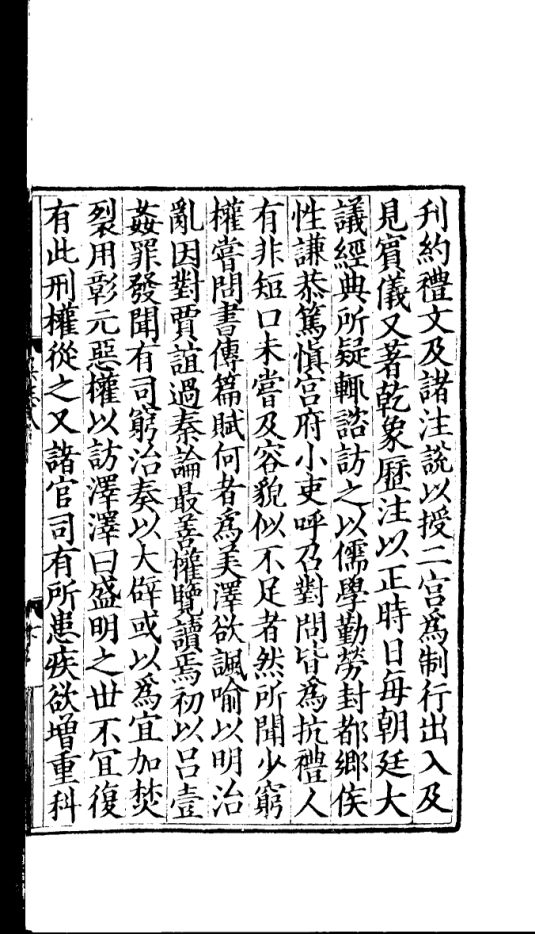 刋約禮文及諸注說以授二宫爲制行出入及
見賔儀又著乾象曆注以正時日每朝廷大
議經典所疑輒諮訪之以儒學勤勞封都鄉侯
性謙恭篤慎宫府小吏呼召對問皆爲抗禮人
有非短口未嘗及容貌似不足者然所聞少窮
權嘗問書傳篇賦何者爲美澤欲諷喻以明治
亂因對賈誼過秦論最善權覽讀焉初以吕壹
姦罪發聞有司窮治奏以大辟或以爲宜加焚
裂用彰元惡權以訪澤澤曰盛明之世不冝復
有此刑權從之又諸官司有所患疾欲增重科